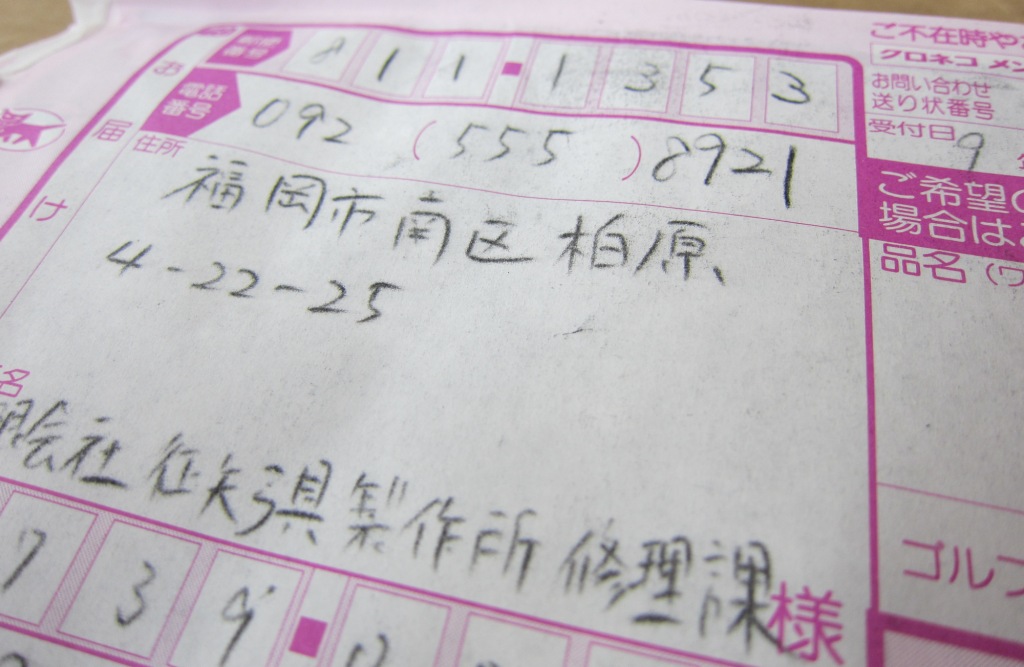 ご不在時や
郵便番号 811-1353
クロネコ メ
お問い合わせ
送り状番号
電話番号 092 (555) 8921
受付日 9
お届け
住所
福岡市南区柏原
4-22-25
ご希望の
場合は
品名 (ワ
名
会社 征矢弓具製作所 修理課 様
739
ゴルフ